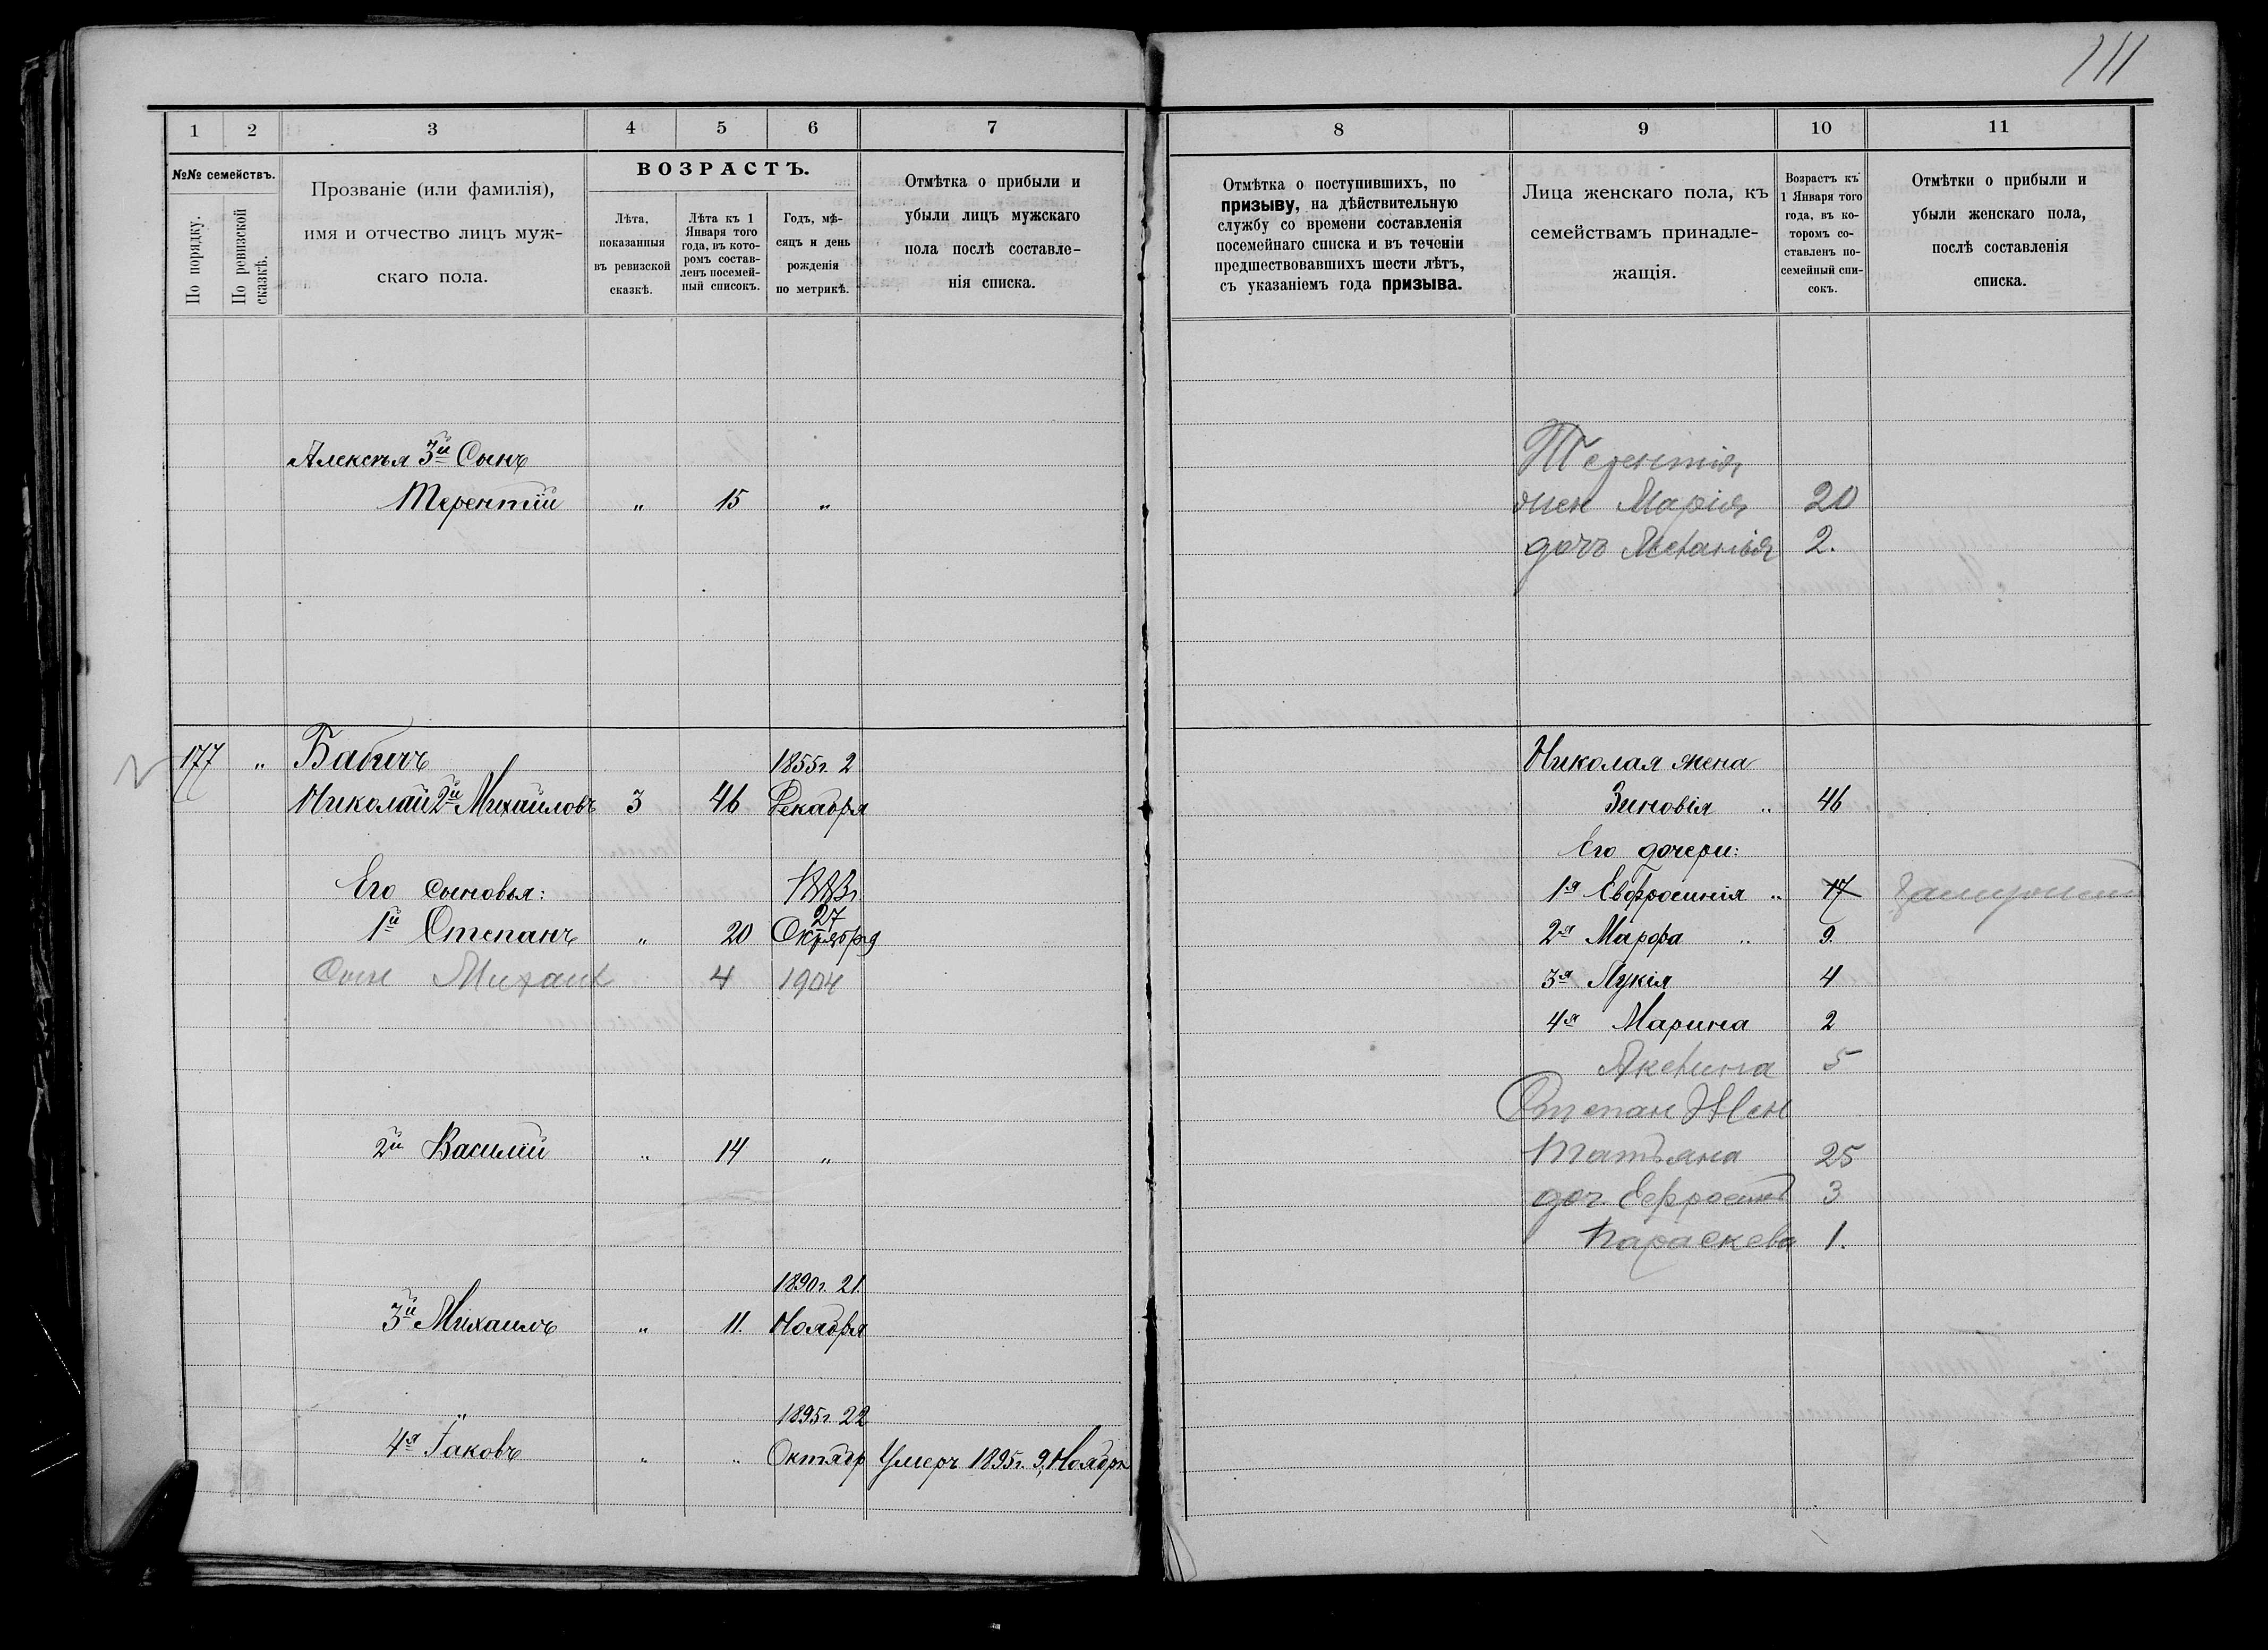 111
1 2 3 4 5 6 7
№№ семействъ.
По порядку.
По ревизской сказкѣ.
Прозваніе (или фамилія),
имя и отчество лицъ муж-
скаго пола.
ВОЗРАСТЪ.
Лѣта,
показанныя
въ ревизской
сказкѣ.
Лѣта къ 1
Января того
года, въ кото-
ромъ состав-
ленъ посемей-
ный списокъ.
Годъ, мѣ-
сяцъ и день
рожденія
по метрикѣ.
Отмѣтка о прибыли и
убыли лицъ мужскаго
пола послѣ составле-
нія списка.
Алексѣя 3й Сынъ
Терентій " 15 "
177 " Бабичъ 1855г. 2
Николай 2й Михайловъ 3 46 Декабря
Его сыновья:
27
1й Степанъ " 20 Октября
Сын Михаил 4 1904
2й Василій " 14 "
1890г. 21.
3й Михаилъ " 11. Ноября
1895г. 22
4й Іаковъ " " Октябр Умеръ 1895г. 9, Ноября
8 9 10 11
Отмѣтка о поступившихъ, по
призыву, на дѣйствительную
службу со времени составленія
посемейнаго списка и въ теченіи
предшествовавшихъ шести лѣтъ,
съ указаніемъ года призыва.
Лица женскаго пола, къ
семействамъ принадле-
жащія.
Возрастъ къ
1 Января того
года, въ ко-
торомъ со-
ставленъ по-
семейный спи-
сокъ.
Отмѣтки о прибыли и
убыли женскаго пола,
послѣ составленія
списка.
Терентія
жен Марія 20
дочь Меланія 2.
Николая жена
Зиновія " 46
Его дочери:
1я Евфросинія " 17
2я Марфа " 9.
3я Лукія 4
4я Марина 2
Акелина 5
Степан Жен
Татьяна 25
доч. Ефросинія 3
Параскева 1.